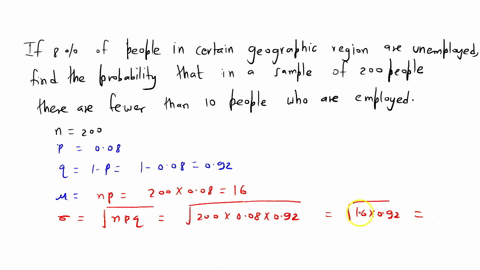 If 8% of people in certain geographic region are unemployed,
find the probability that in a sample of 200 people
there are fewer than 10 people who are employed.
n = 200
p = 0.08
q = 1-p = 1-0.08 = 0.92
μ = np = 200 × 0.08 = 16
σ = √npq = √200 × 0.08 × 0.92 = √1.6 × 0.92 =